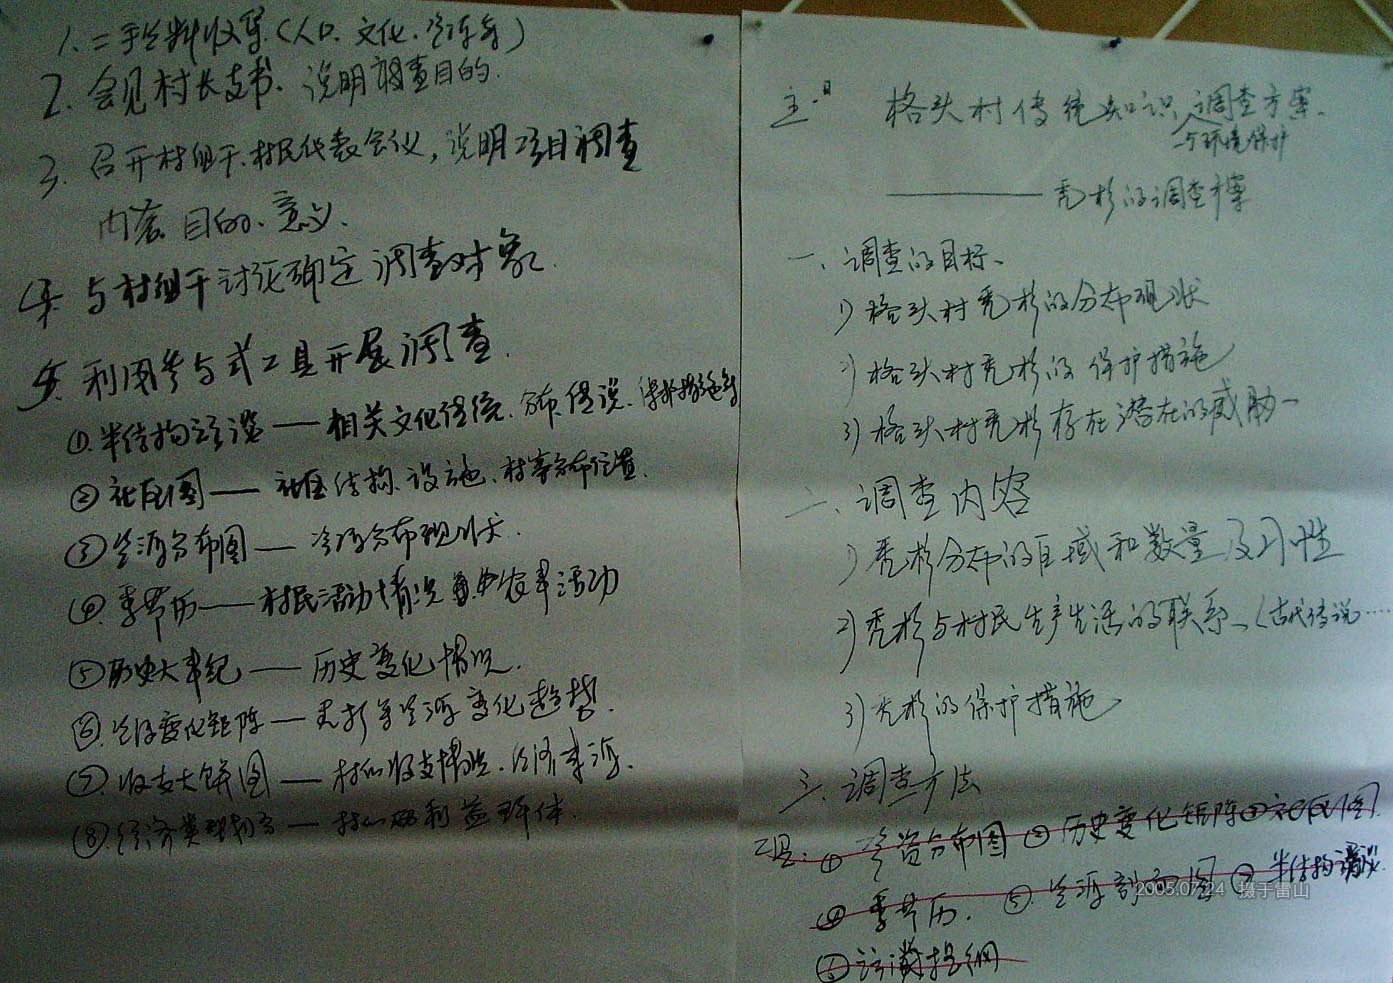 1. 二手资料收集(人口、文化、资源等)
2. 会见村长支书、说明调查目的.
3. 召开村组干、村民代表会议，说明项目调查
内容、目的、意义.
4. 与村组干讨论确定调查对象.
5. 利用参与式工具开展调查.
①. 半结构访谈——相关文化传统、分布、传说、保护措施等
② 社区图——社区结构、设施、村寨分布位置.
③ 资源分布图——资源分布现状.
④ 季节历——村民活动情况 农事活动
⑤ 历史大事记——历史变化情况.
⑥. 资源变化矩阵——秃杉等资源变化趋势.
⑦. 收支大饼图——村民收支情况、经济来源.
⑧ 经济类型划分——利益群体.
主题 格头村传统知识与环境保护调查方案.
———秃杉的调查方案
一、调查的目标、
1) 格头村秃杉的分布现状
2) 格头村秃杉的保护措施
3) 格头村秃杉存在潜在的威胁
二、调查内容
1) 秃杉分布的区域和数量及习性
2) 秃杉与村民生产生活的联系、(古代传说……
3) 秃杉的保护措施
三、调查方法
工具: ① 资源分布图 ② 历史变化矩阵 ③ 社区图
④ 季节历. ⑤. 资源剖面图 ⑦ 半结构访谈
⑥ 访谈提纲
2005.07.24 摄于雷山